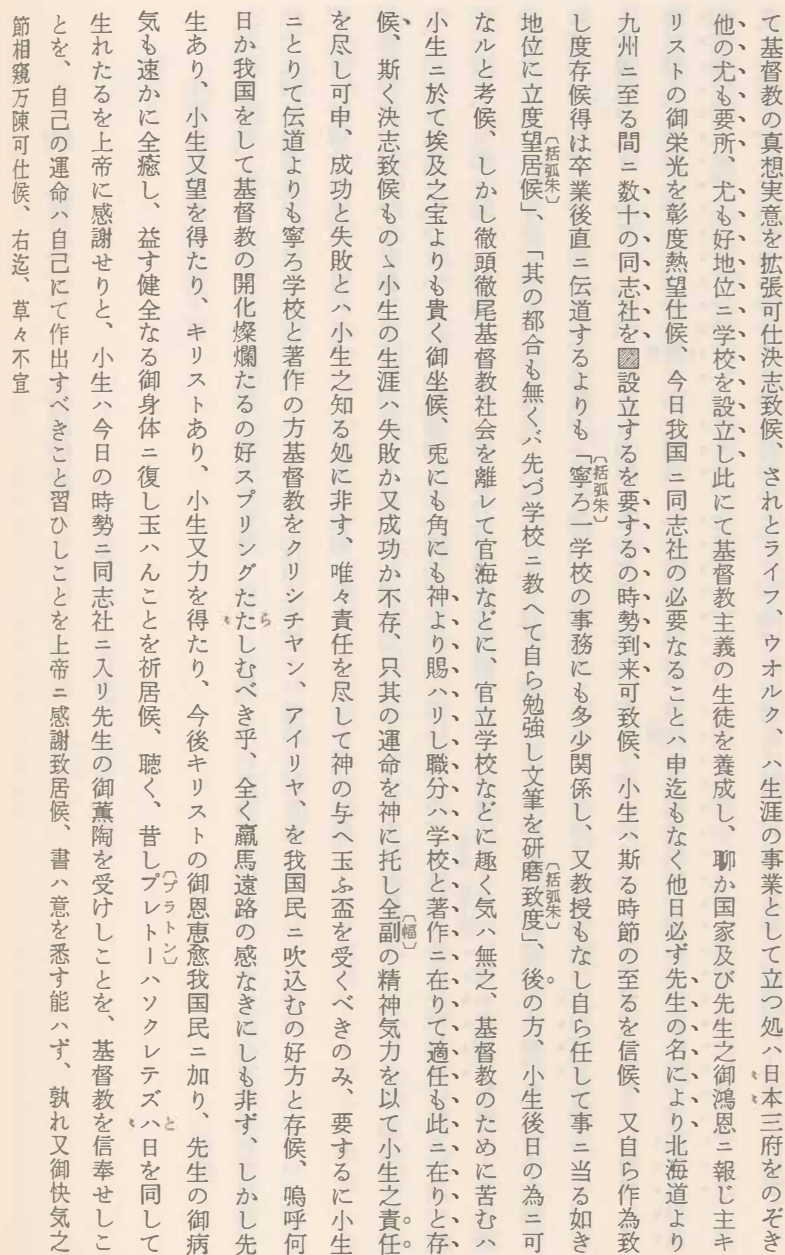 て基督教の真想実意を拡張可仕決志致候、されとライフ、ウオルク、ハ生涯の事業として立つ処ハ日本三府をのぞき
他の尤も要所、尤も好地位ニ学校を設立し此にて基督教主義の生徒を養成し、聊か国家及び先生之御鴻恩ニ報じ主キ
リストの御栄光を彰度熱望仕候、今日我国ニ同志社の必要なることハ申迄もなく他日必ず先生の名により北海道より
九州ニ至る間ニ数十の同志社を▨設立するを要するの時勢到来可致候、小生ハ斯る時節の至るを信候、又自ら作為致
し度存候得は卒業後直ニ伝道するよりも〔括弧朱〕「寧ろ一学校の事務にも多少関係し、又教授もなし自ら任して事ニ当る如き
地位に立度望居候」〔括弧朱〕、「其の都合も無くバ先づ学校ニ教へて自ら勉強し文筆を研磨致度」〔括弧朱〕、後の方、小生後日の為ニ可
なルと考候、しかし徹頭徹尾基督教社会を離レて官海などに、官立学校などに趣く気ハ無之、基督教のために苦むハ
小生ニ於て埃及之宝よりも貴く御坐候、兎にも角にも神より賜ハりし職分ハ学校と著作ニ在りて適任も此ニ在りと存
候、斯く決志致候ものゝ小生の生涯ハ失敗か又成功か不存、只其の運命を神に托し全副〔幅〕の精神気力を以て小生之責任
を尽し可申、成功と失敗とハ小生之知る処に非す、唯々責任を尽して神の与へ玉ふ盃を受くべきのみ、要するに小生
ニとりて伝道よりも寧ろ学校と著作の方基督教をクリシチヤン、アイリヤ、を我国民ニ吹込むの好方と存候、嗚呼何
日か我国をして基督教の開化燦爛たるの好スプリングたたしむべき乎、全く羸馬遠路の感なきにしも非ず、しかし先
生あり、小生又望を得たり、キリストあり、小生又力を得たり、今後キリストの御恩恵愈我国民ニ加り、先生の御病
気も速かに全癒し、益す健全なる御身体ニ復し玉ハんことを祈居候、聴く、昔しプレトー〔プラトン〕ハソクレテズハと日を同して
生れたるを上帝に感謝せりと、小生ハ今日の時勢ニ同志社ニ入り先生の御薫陶を受けしことを、基督教を信奉せしこ
とを、自己の運命ハ自己にて作出すべきこと習ひしことを上帝ニ感謝致居候、書ハ意を悉す能ハず、孰れ又御快気之
節相窺万陳可仕候、右迄、草々不宣